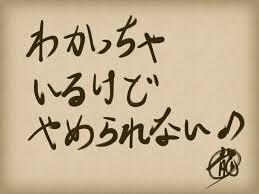 わかっちゃ
いるけど
やめられない♪